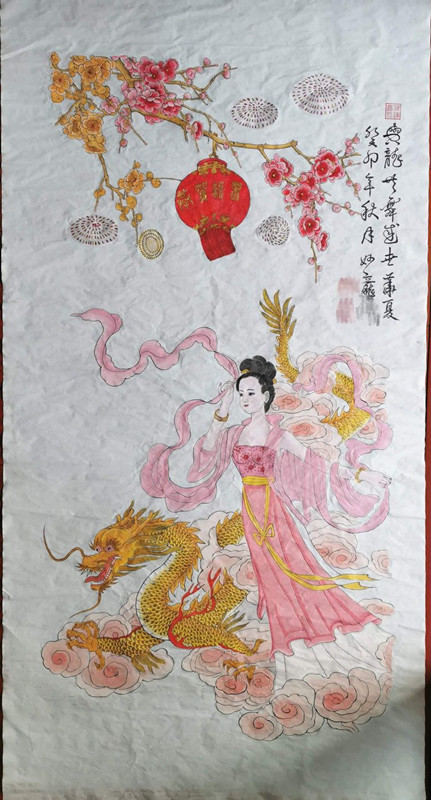 與龍共舞盛世華夏
癸卯年秋月妙